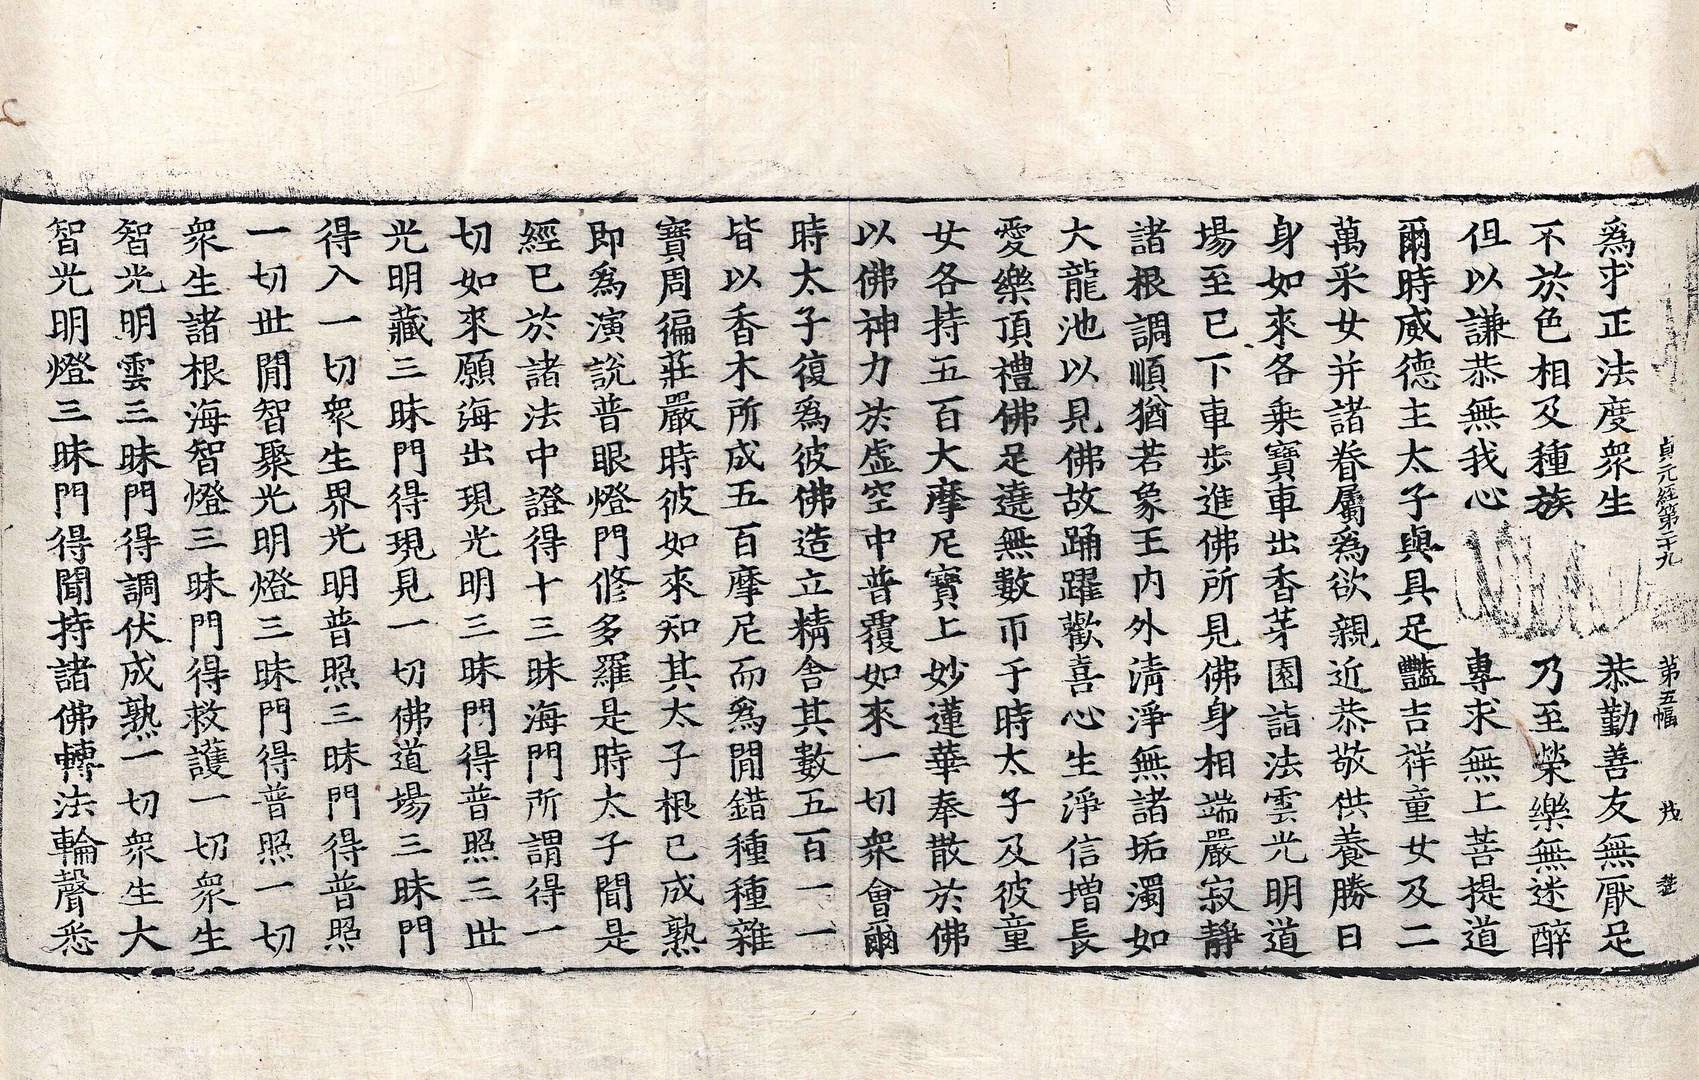 貞元經第二十九　第五幅　茂
爲求正法度衆生　恭勤善友無厭足
不於色相及種族　乃至榮樂無迷醉
但以謙恭無我心　專求無上菩提道
爾時威德主太子與具足豔吉祥童女及二
萬采女并諸眷屬爲欲親近恭敬供養勝日
身如來各乘寶車出香芽園詣法雲光明道
場至已下車步進佛所見佛身相端嚴寂靜
諸根調順猶若象王內外清淨無諸垢濁如
大龍池以見佛故踊躍歡喜心生淨信增長
愛樂頂禮佛足遶無數帀于時太子及彼童
女各持五百大摩尼寶上妙蓮華奉散於佛
以佛神力於虛空中普覆如來一切衆會爾
時太子復爲彼佛造立精舍其數五百一一
皆以香木所成五百摩尼而爲閒錯種種雜
寶周徧莊嚴時彼如來知其太子根已成熟
即爲演說普眼燈門修多羅是時太子聞是
經已於諸法中證得十三昧海門所謂得一
切如來願海出現光明三昧門得普照三世
光明藏三昧門得現見一切佛道場三昧門
得入一切衆生界光明普照三昧門得普照
一切世閒智聚光明燈三昧門得普照一切
衆生諸根海智燈三昧門得救護一切衆生
智光明雲三昧門得調伏成熟一切衆生大
智光明燈三昧門得聞持諸佛轉法輪聲悉